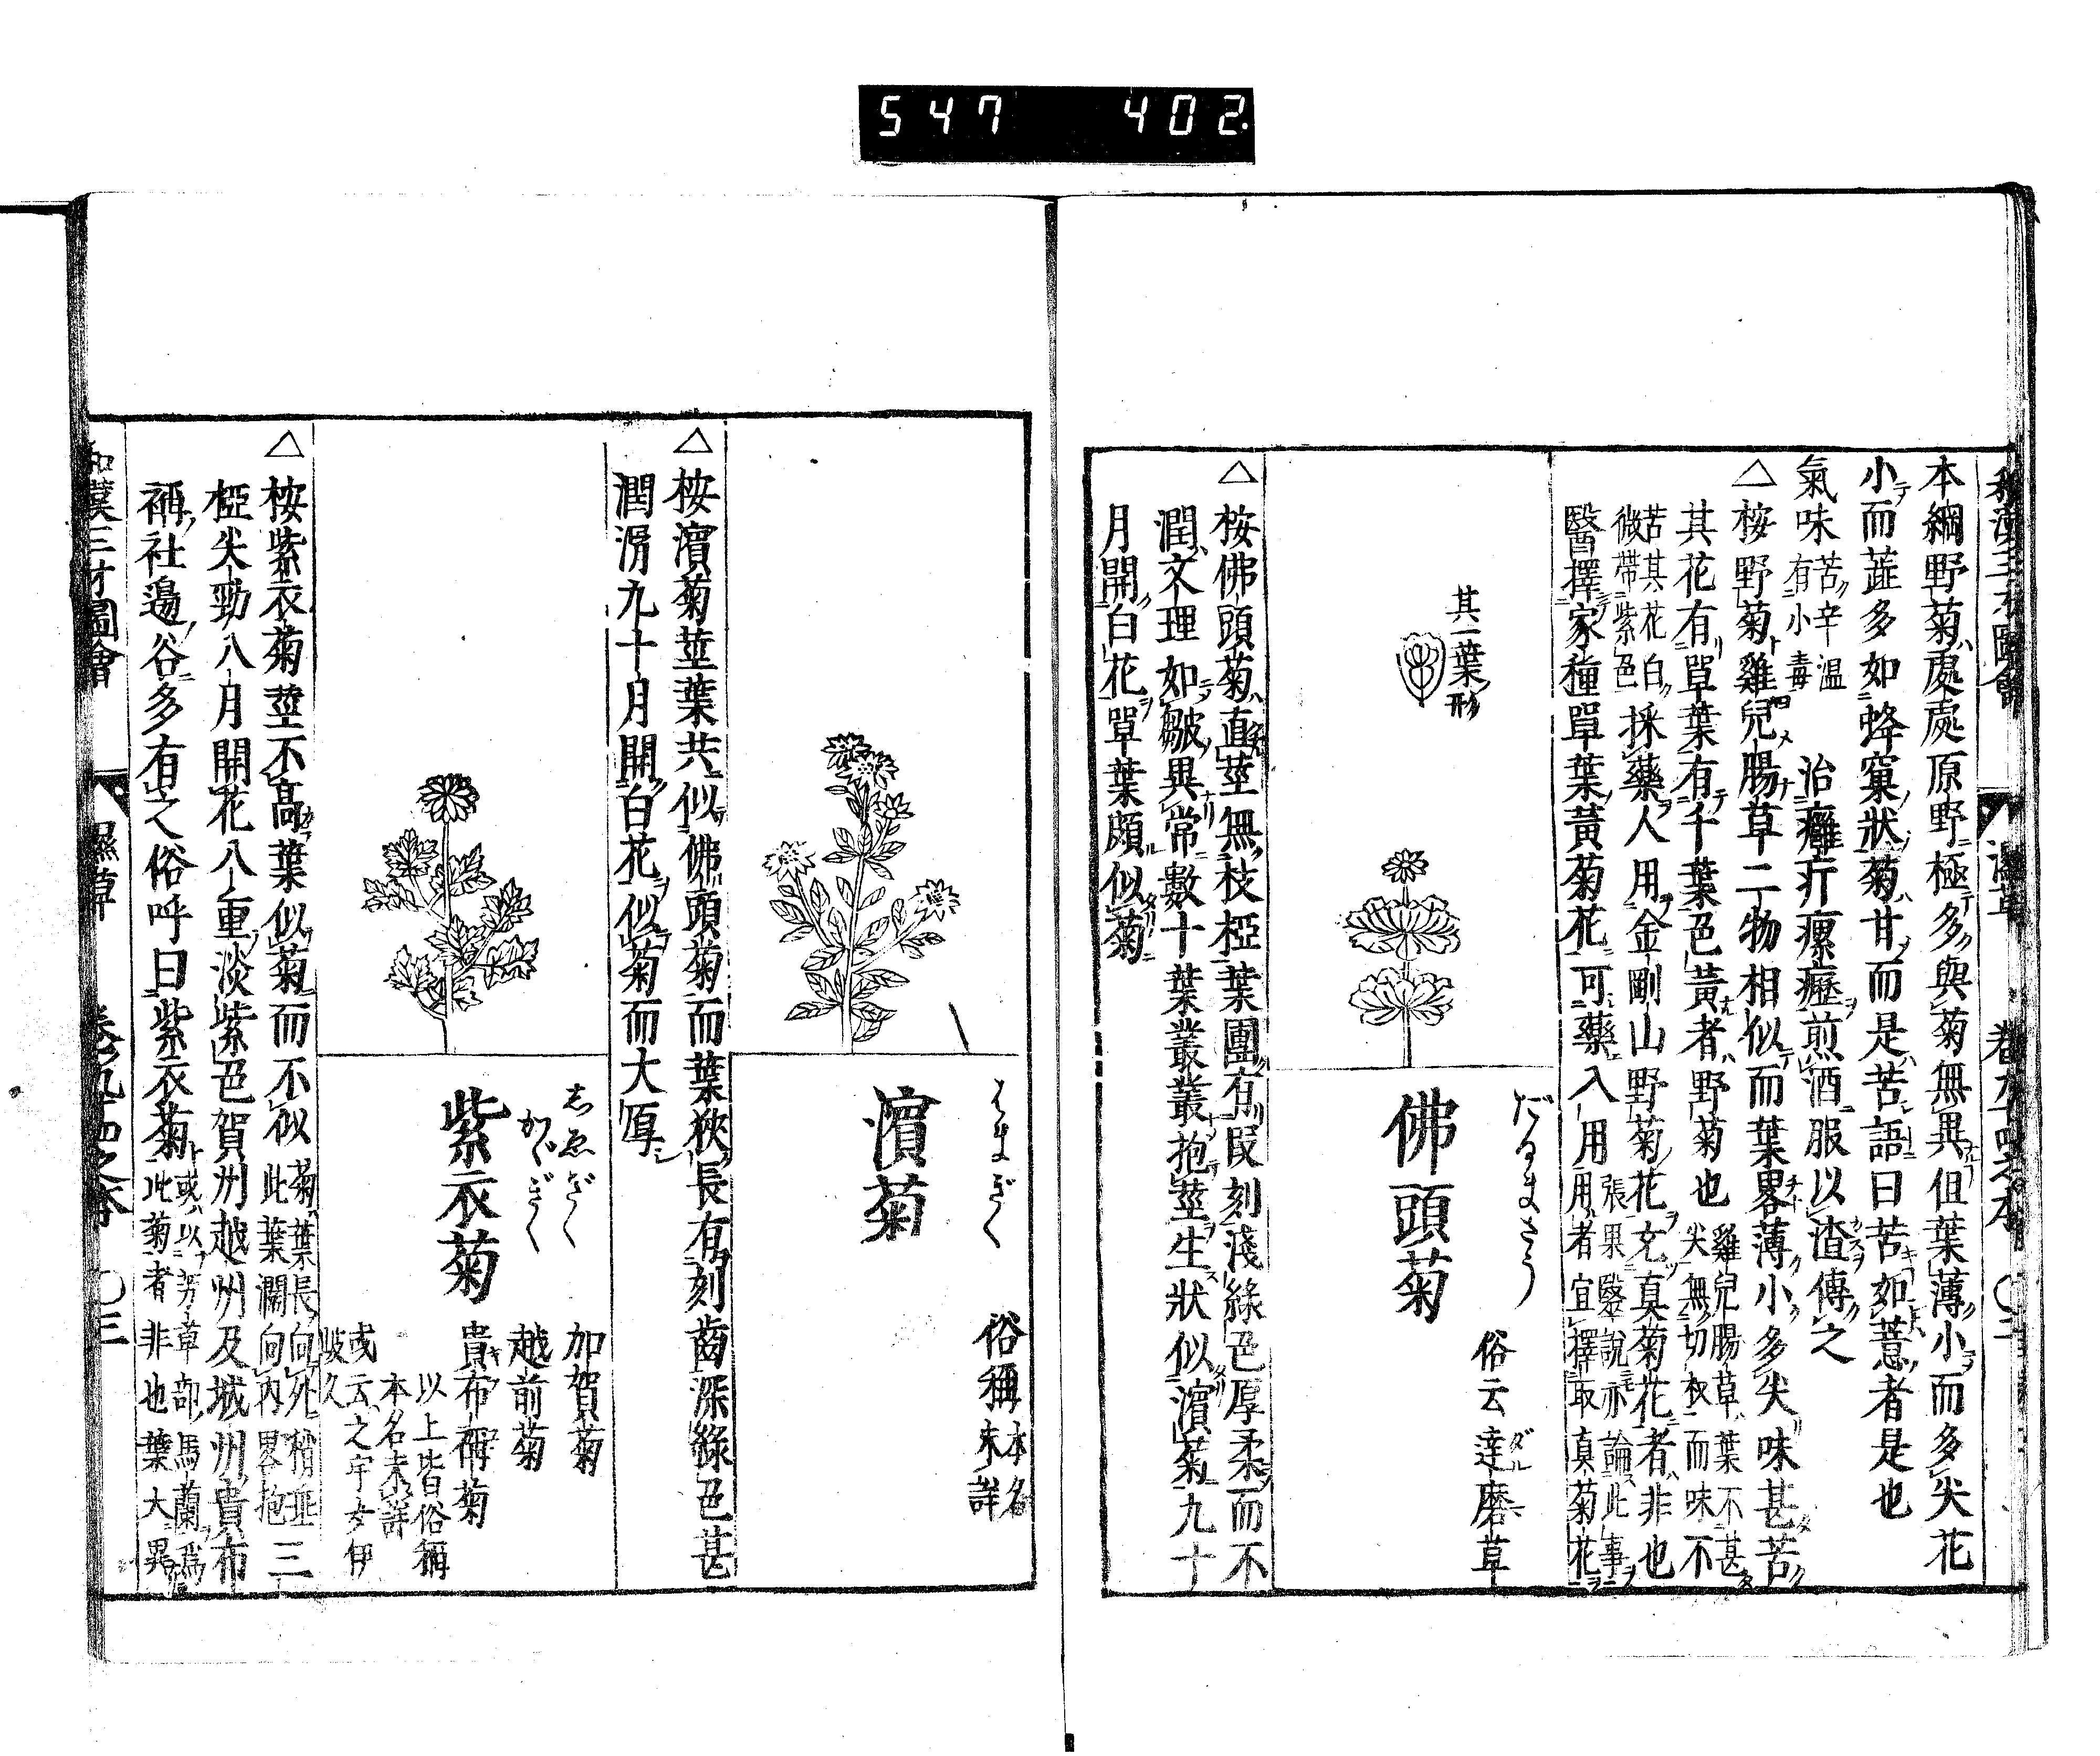 547 402
本綱野菊處處原野極多與菊無異但葉薄小而多尖花
小而蕋多如蜂窠狀菊甘而是苦語曰苦如薏者是也
氣味 苦辛溫
有小毒 治癰疔瘰癧煎酒服以渣傅之
△按野菊雞兒腸草二物相似而葉畧薄小多尖味甚苦
其花有單葉有千葉色黃者野菊也 雞兒腸草葉不甚
尖無切杈而味不
苦其花白
微帶紫色 採藥人用金剛山野菊花充真菊花者非也
醫擇家種單葉黃菊花可藥入用 張果醫說亦論此事
用者宜擇取真菊花
其一葉形
佛頭菊
だるまさう
俗云達磨草
△按佛頭菊直莖無枝椏葉團有叚刻淺綠色厚柔而不
潤文理如皺異常數十葉叢叢抱莖生狀似濵菊九十
月開白花單葉頗似菊
濵菊
はまぎく
俗稱 本名
未詳
△按濵菊莖葉共似佛頭菊而葉狹長有刻齒深綠色甚
潤滑九十月開白花似菊而大厚
紫衣菊
志ゑぎく
かゞぎく
加賀菊
越前菊
貴布禰菊
以上皆俗稱
本名未詳
或云之宇女伊
岐久
△按紫衣菊莖不髙葉似菊而不似 菊葉長向外稍垂
此葉濶向內畧抱 三
椏尖勁八月開花八重淡紫色賀州越州及城州貴布
禰社邉谷多有之俗呼曰紫衣菊 或以芳草部馬蘭爲
此菊者非也葉大異
和漢三才圖會 濕草 卷九十四之本 〇三